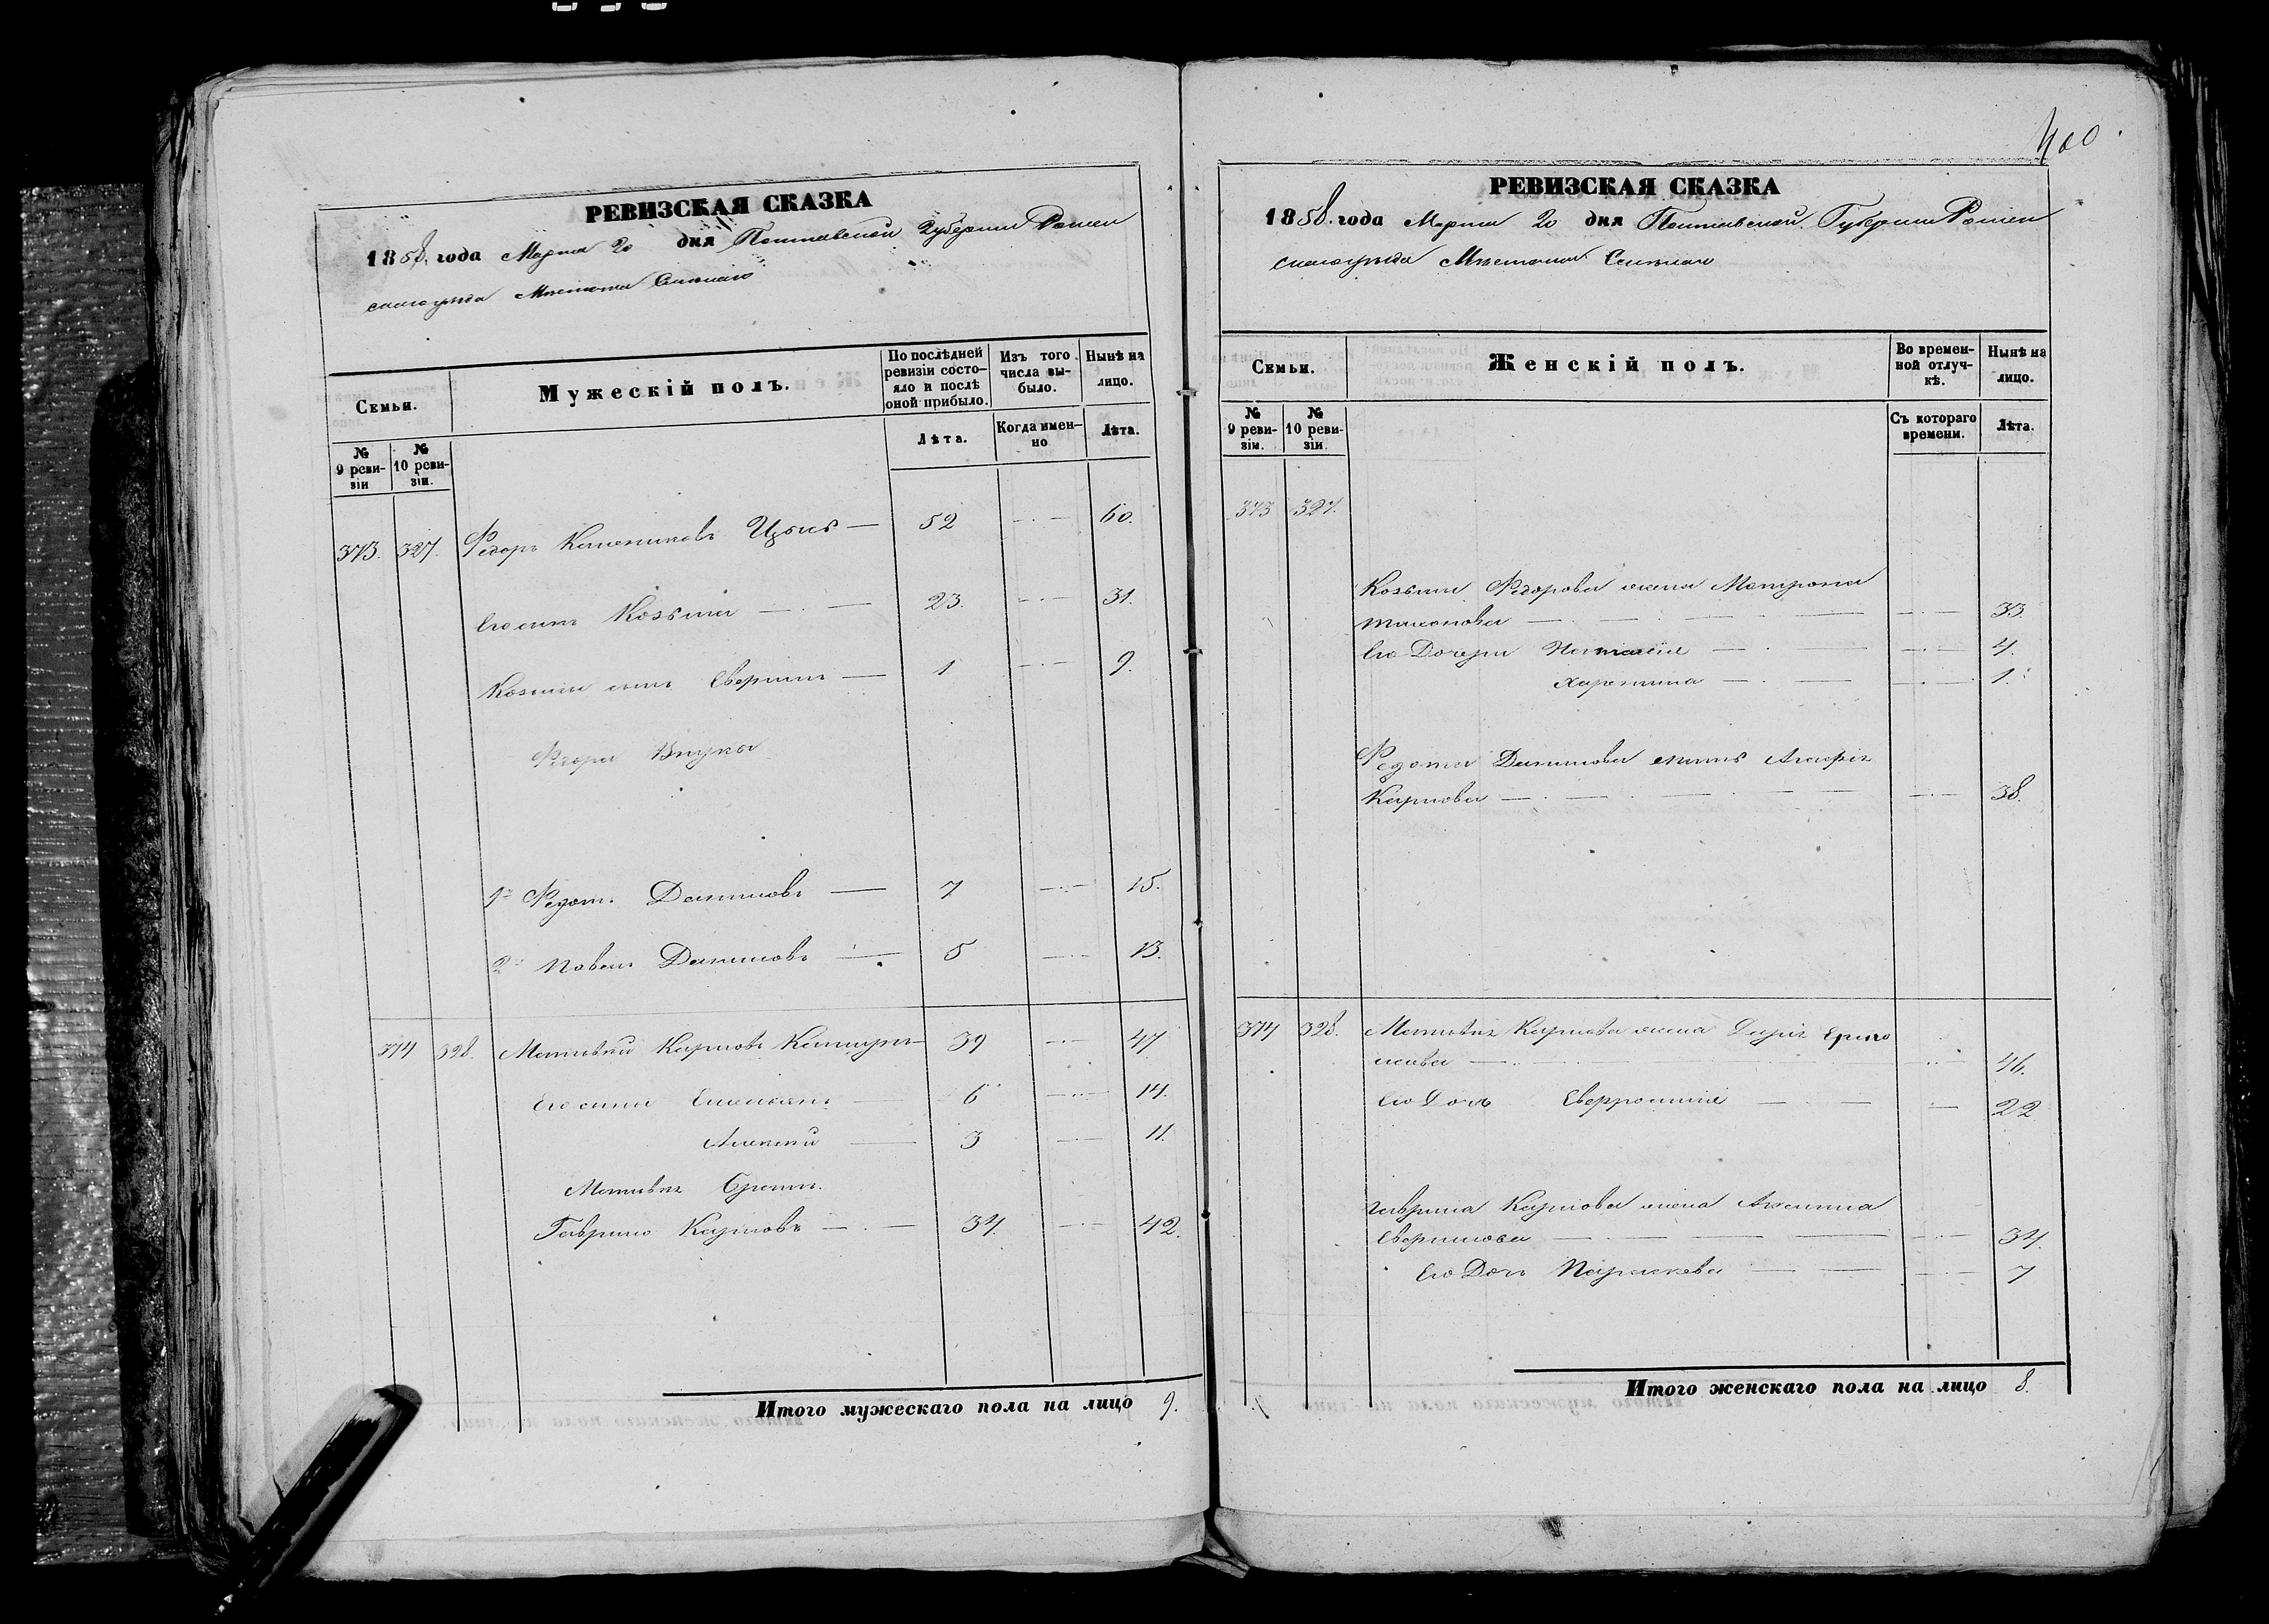 400
РЕВИЗСКАЯ СКАЗКА
1858. года Марта 20 дня Полтавской Губернии Ромен
скаго уезда Местечка
По послѣдней ревизіи состояло и послѣ оной прибыло.
Изъ того числа выбыло.
Нынѣ на лицо.
Семьи.
Мужескій полъ.
Лѣта.
Когда именно
Лѣта.
№ 9 ревизіи
№ 10 ревизіи.
373. 327. Федоръ Цюпъ — 52 — 60.
Его сынъ Козьма — 23. — 31.
Козьмы сынъ — 1 — 9.
Федора Внуки
1й Федотъ Даниловъ — 7 — 15.
2й Павелъ Даниловъ — 5 — 13.
374 328. Матвѣй Карповъ — 39 — 47
Его сыны Емельянъ — 6 — 14.
Алексей — 3 — 11.
Матвѣя Братъ
Гаврило Карповъ — 34. — 42.
Итого мужескаго пола на лицо 9.
РЕВИЗСКАЯ СКАЗКА
1858. года Марта 20 дня Полтавской Губернии Ромен
скаго уезда Местечка
Семьи.
Женскій полъ.
Во временной отлучкѣ.
Нынѣ на лицо.
№ 9 ревизіи.
№ 10 ревизіи.
Съ котораго времени.
Лѣта.
373 327.
Козьмы Федорова жена Матрона
— 33.
Его Дочери Наталія — 4.
Харитина — 1.
Федота Данилова мать Агафія
Карпова — 38.
374 328. Матвѣя Карпова жена Дарія Ермо
лаева — 46.
Его Дочь Евфросинія — 22
Гаврила Карпова жена Акилина
— 34.
Его Дочь Параскева — 7
Итого женскаго пола на лицо 8.